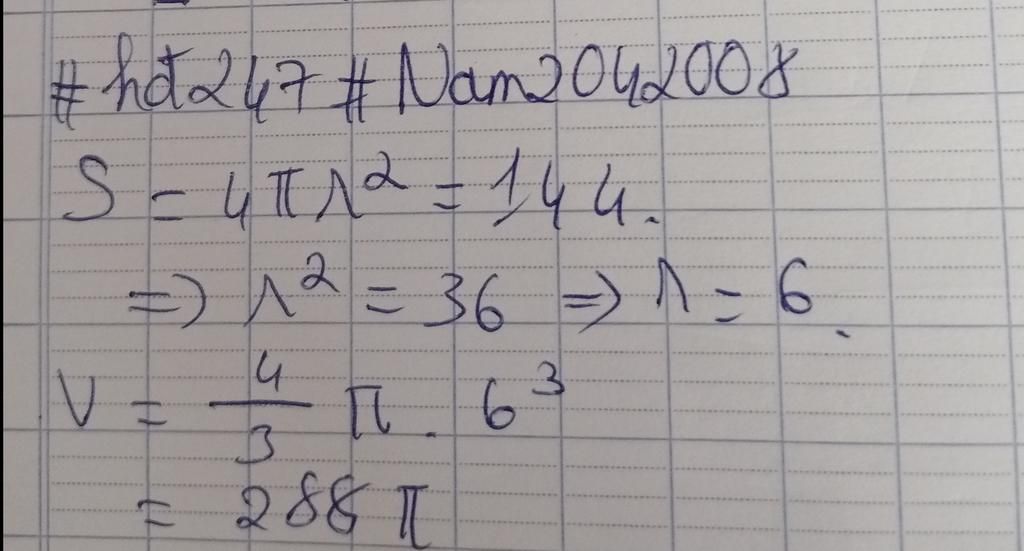 #hđ247 #Nam2042008
S = 4πr² = 144.
=> r² = 36 => r = 6.
V = 4/3 π . 6³
= 288 π